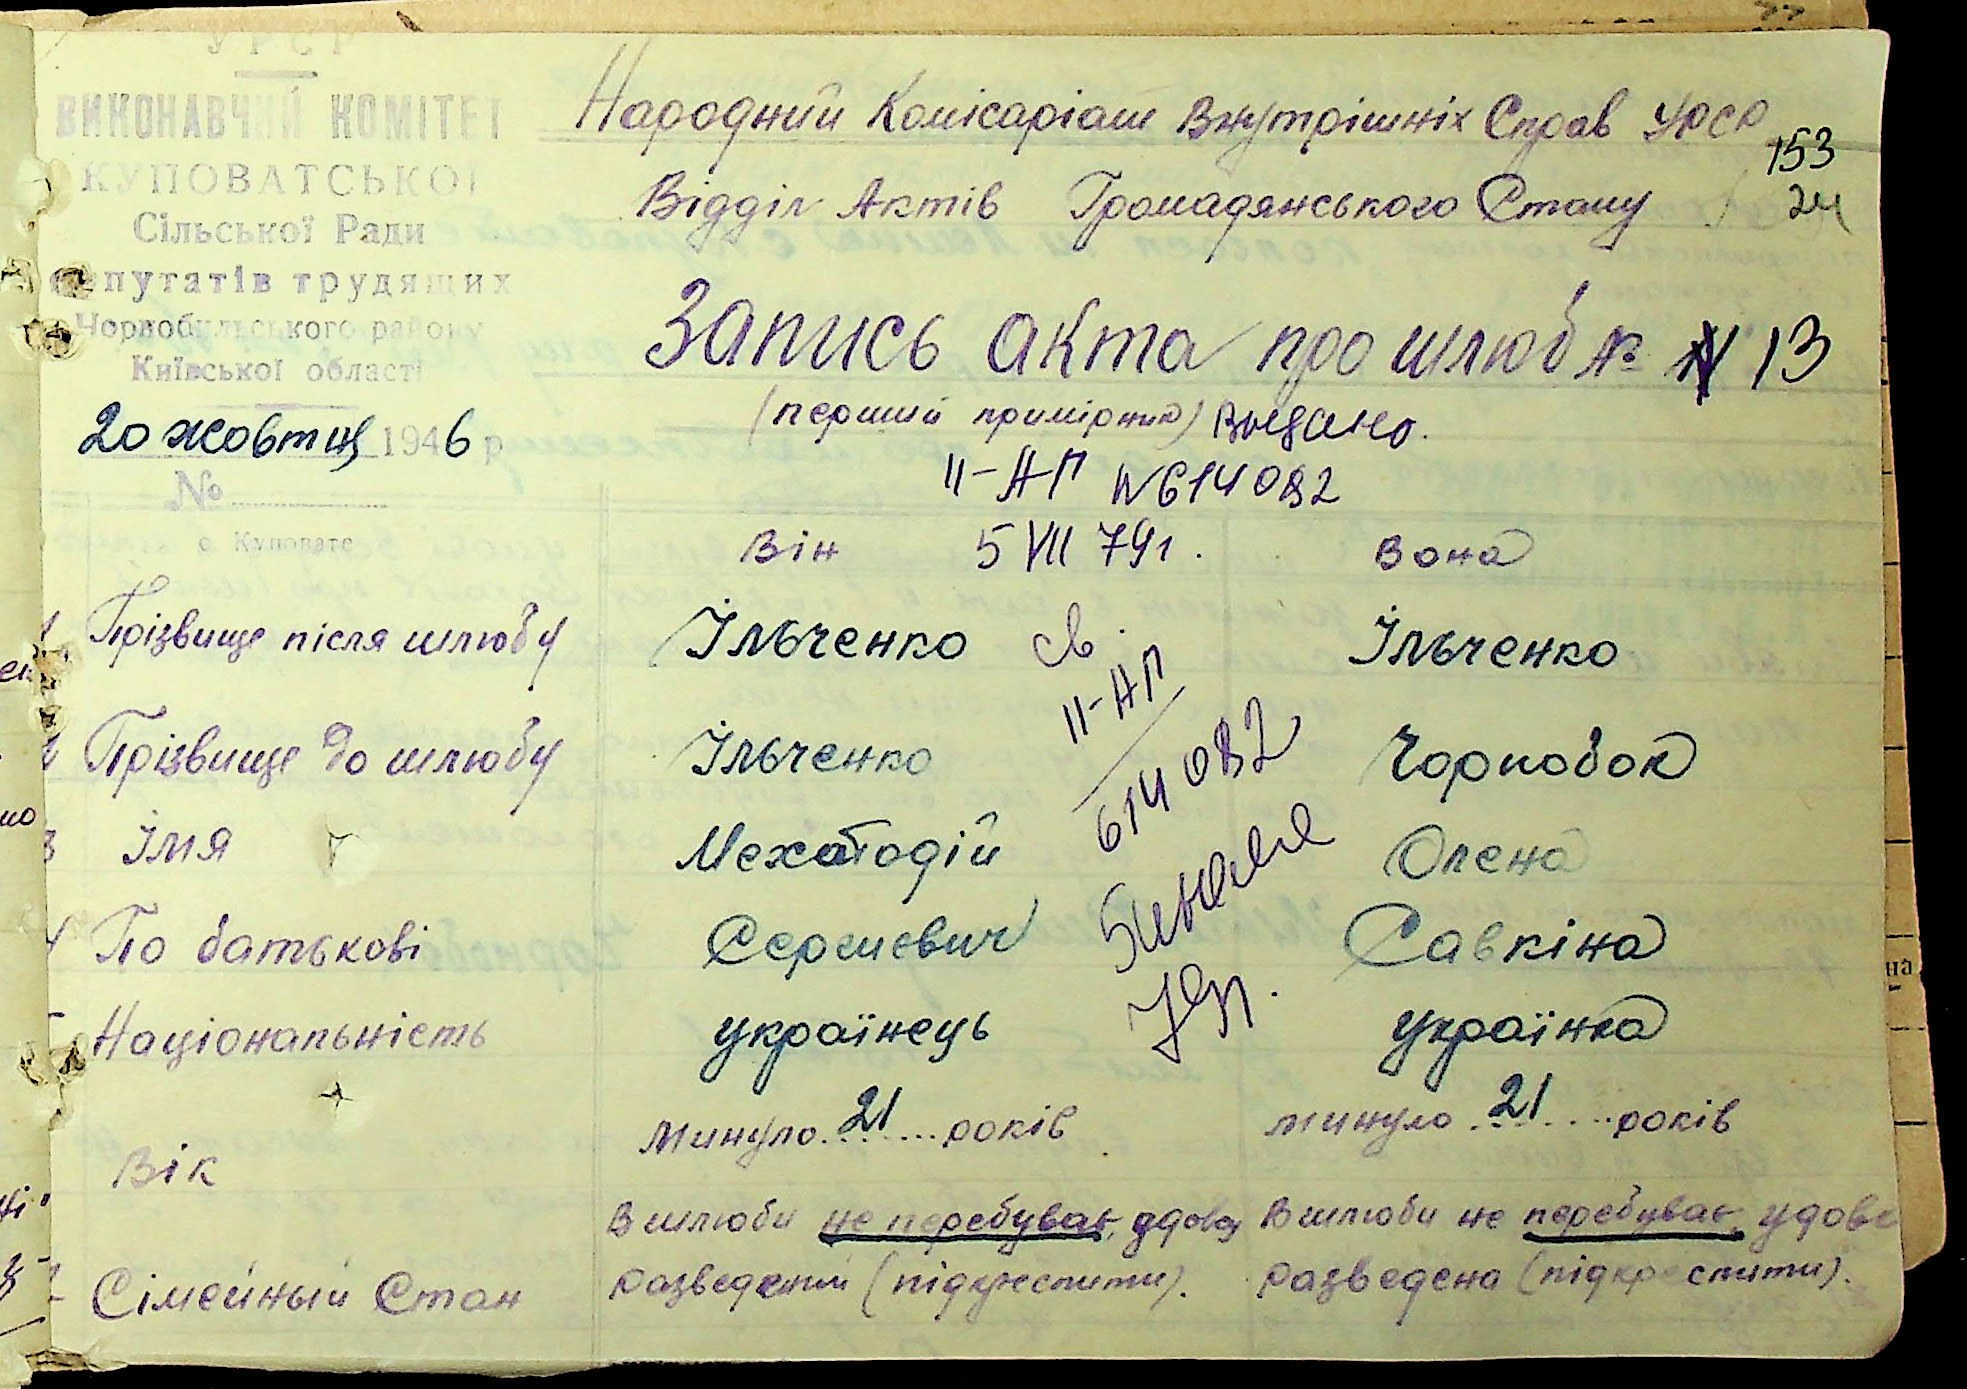 УРСР
ВИКОНАВЧИЙ КОМІТЕТ
КУПОВАТСЬКОЇ
Сільської Ради
депутатів трудящих
Чорнобильського району
Київської області
20 жовтня 1946 р
№
с Куповате
Народний Комісаріат Внутрішніх Справ УРСР
153
Відділ Актів Громадянського Стану
24
Запис акта про шлюб № 13
(перший примірник) Выдано.
II-АП №614082
Він 5 VII 79г. Вона
1 Прізвище після шлюбу Ільченко св. Ільченко
II-АП
614082
2 Прізвище до шлюбу Ільченко Чорнобок
3 Імя Олена
5 июля
4 По батькові Сергиєвич Савкіна
79г.
5 Національність українець українка
Вік минуло 21 років минуло 21 років
Сімейный Стан В шлюби не перебуває, вдовец В шлюби не перебуває, удова
разведений (підкреслити). разведена (підкреслити).